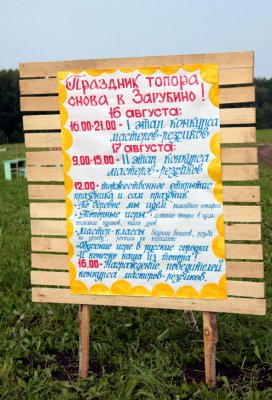 Праздник топора
снова в Зарубино!
16 августа:
16.00-21.00 - I этап конкурса
мастеров-резчиков
17 августа:
9.00-15.00 - II этап конкурса
мастеров-резчиков
12.00 - торжественное открытие
праздника и сам праздник
- По деревне мы идем
- "Топорные игры" - метание топора в цель
- Мастер-классы вязание веников, резьба
по дереву, роспись по
- Обучение игре в русские городки
- И конечно каша из топора!
16.00 - Награждение победителей
конкурса мастеров-резчиков.